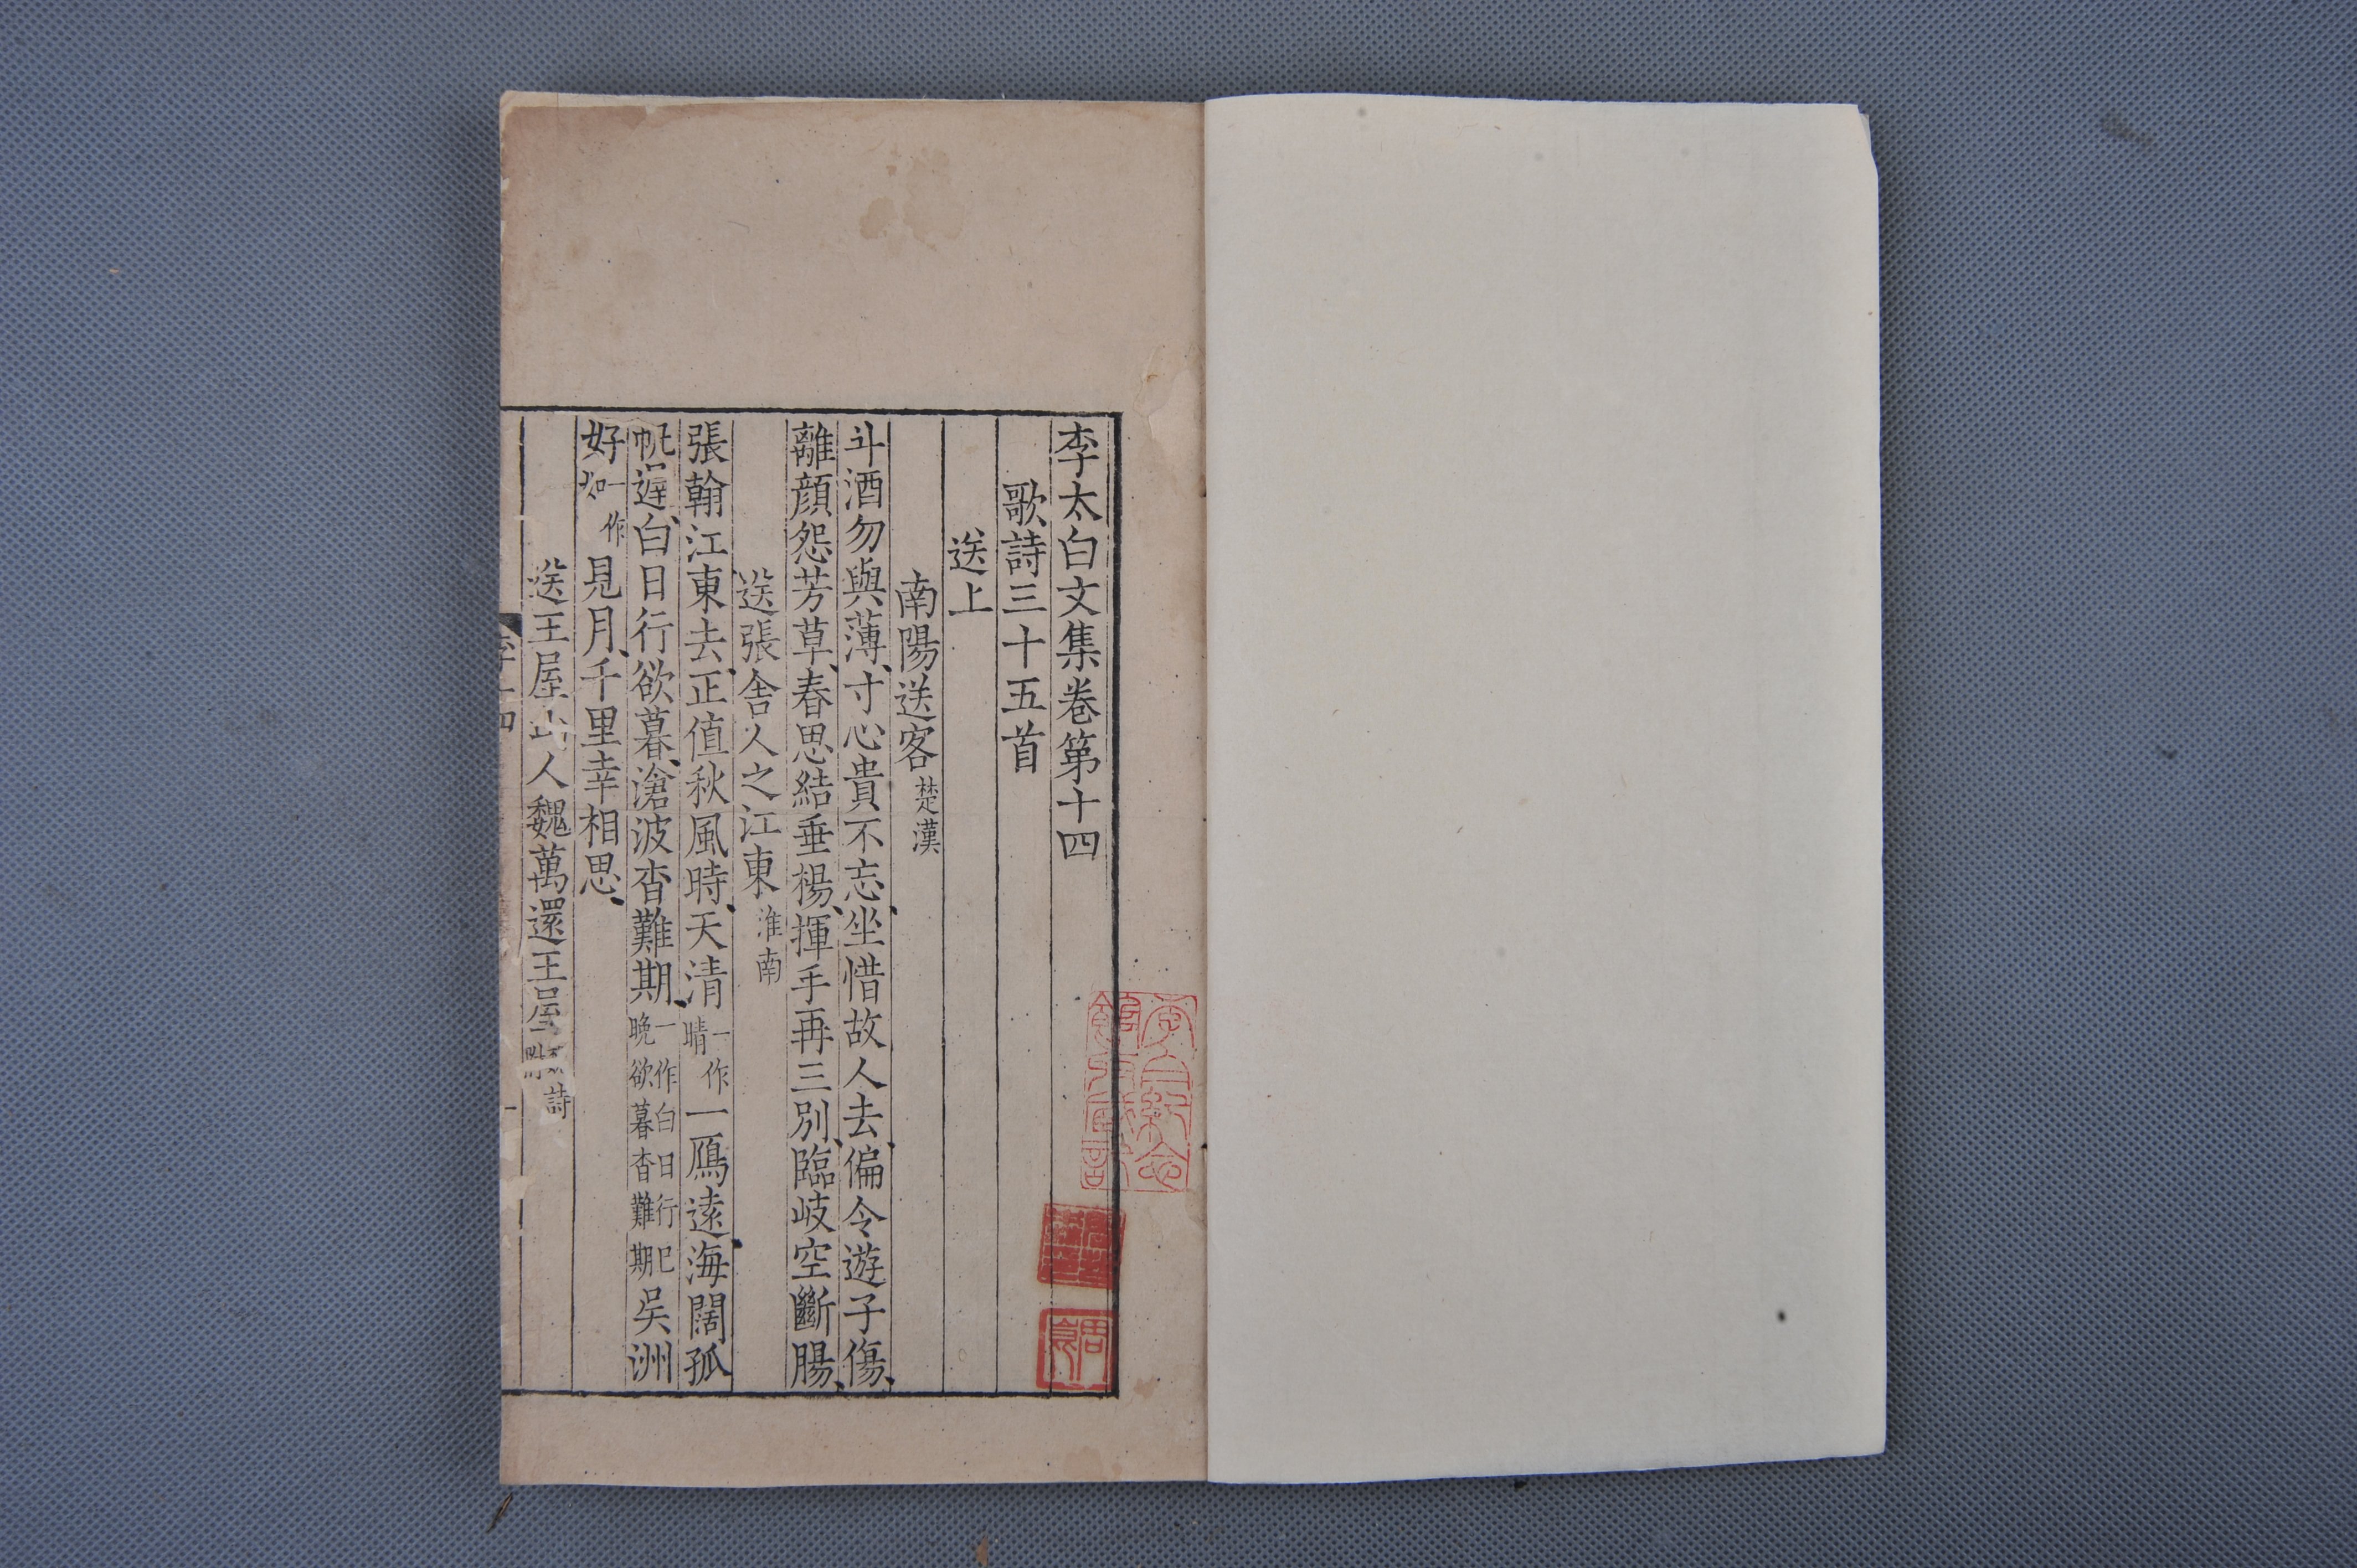 李太白文集卷第十四
歌詩三十五首
送上
南陽送客楚漢
斗酒勿與薄、寸心貴不忘、坐惜故人去、偏令遊子傷、
離顔怨芳草、春思結垂楊、揮手再三別、臨岐空斷腸、
送張舍人之江東淮南
張翰江東去、正值秋風時、天清一作晴一鴈遠、海闊孤
帆遲、白日行欲暮、滄波杳難期、一作白日行已晚欲暮杳難期吳洲
好一作如見月、千里幸相思、
送王屋山人魏萬還王屋詩
李十四
一
李白紀念館所藏印記
周